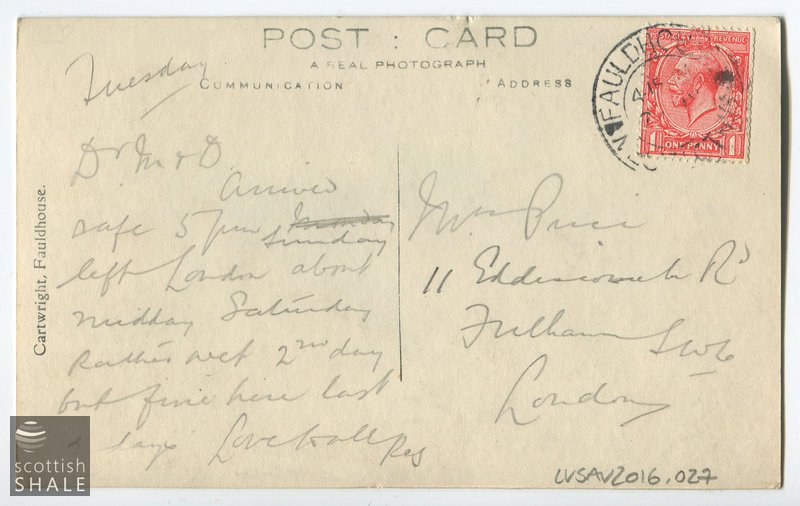 POST : CARD
A REAL PHOTOGRAPH
COMMUNICATION
ADDRESS
Cartwright, Fauldhouse.
Tuesday
Dr M & D
Arrived
safe 5 pm Monday
Sunday
left London about
midday Saturday
Rather wet 2nd day
but fine here last
days Love to all Reg
Mrs Price
11 Eddiscombe Rd
Fulham SW6
London
FAULDHO
POSTAGE REVENUE
1 ONE PENNY 1
LVSAV2016.027
scottish
SHALE